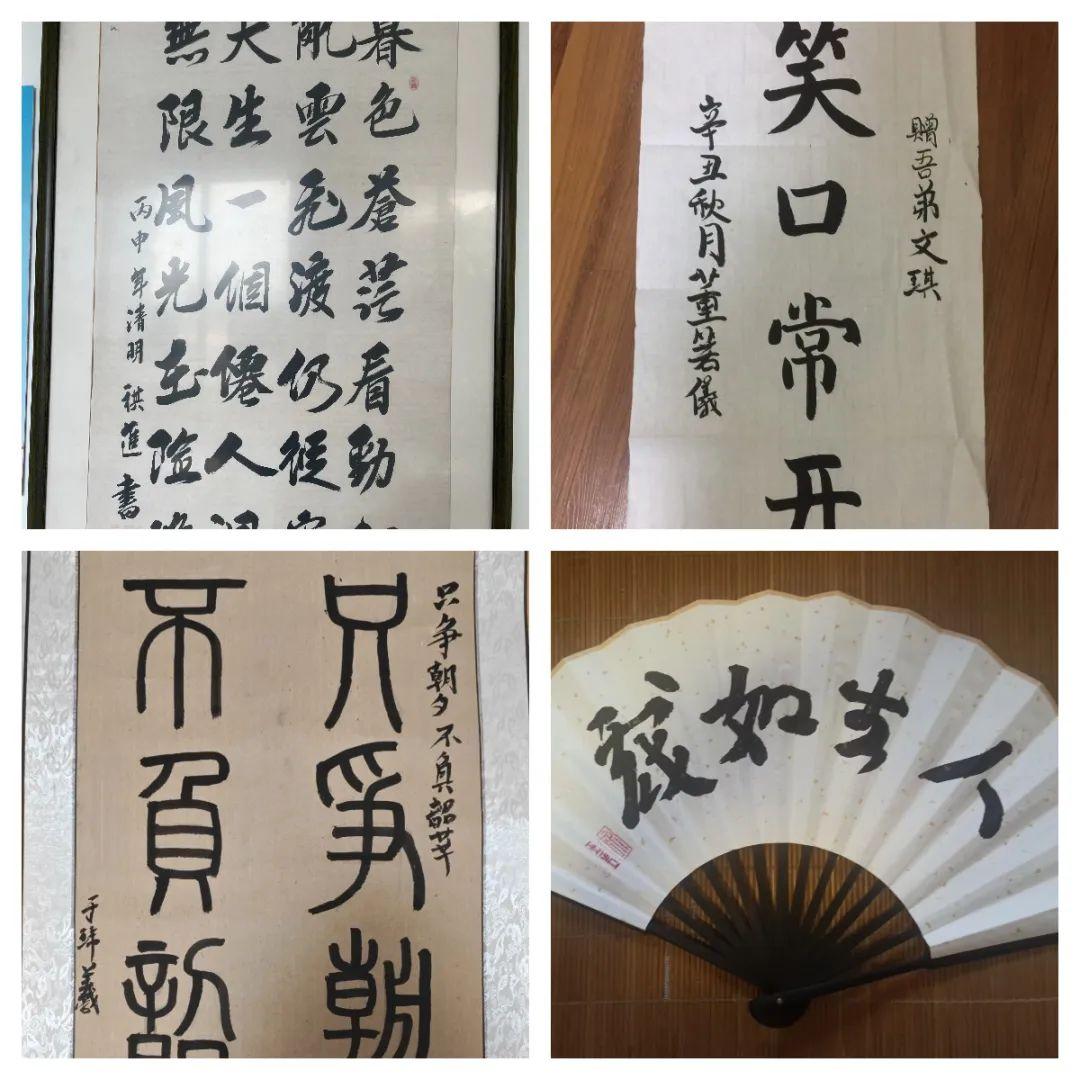 暮色蒼茫看勁
亂雲飛渡仍從
天生一個僊人
無限風光在險
丙申年清明 祺進書
贈吾弟文琪
笑口常开
辛丑秋月董箬儀
只争朝夕不負韶华
只爭朝
不負韶
于義
人生如